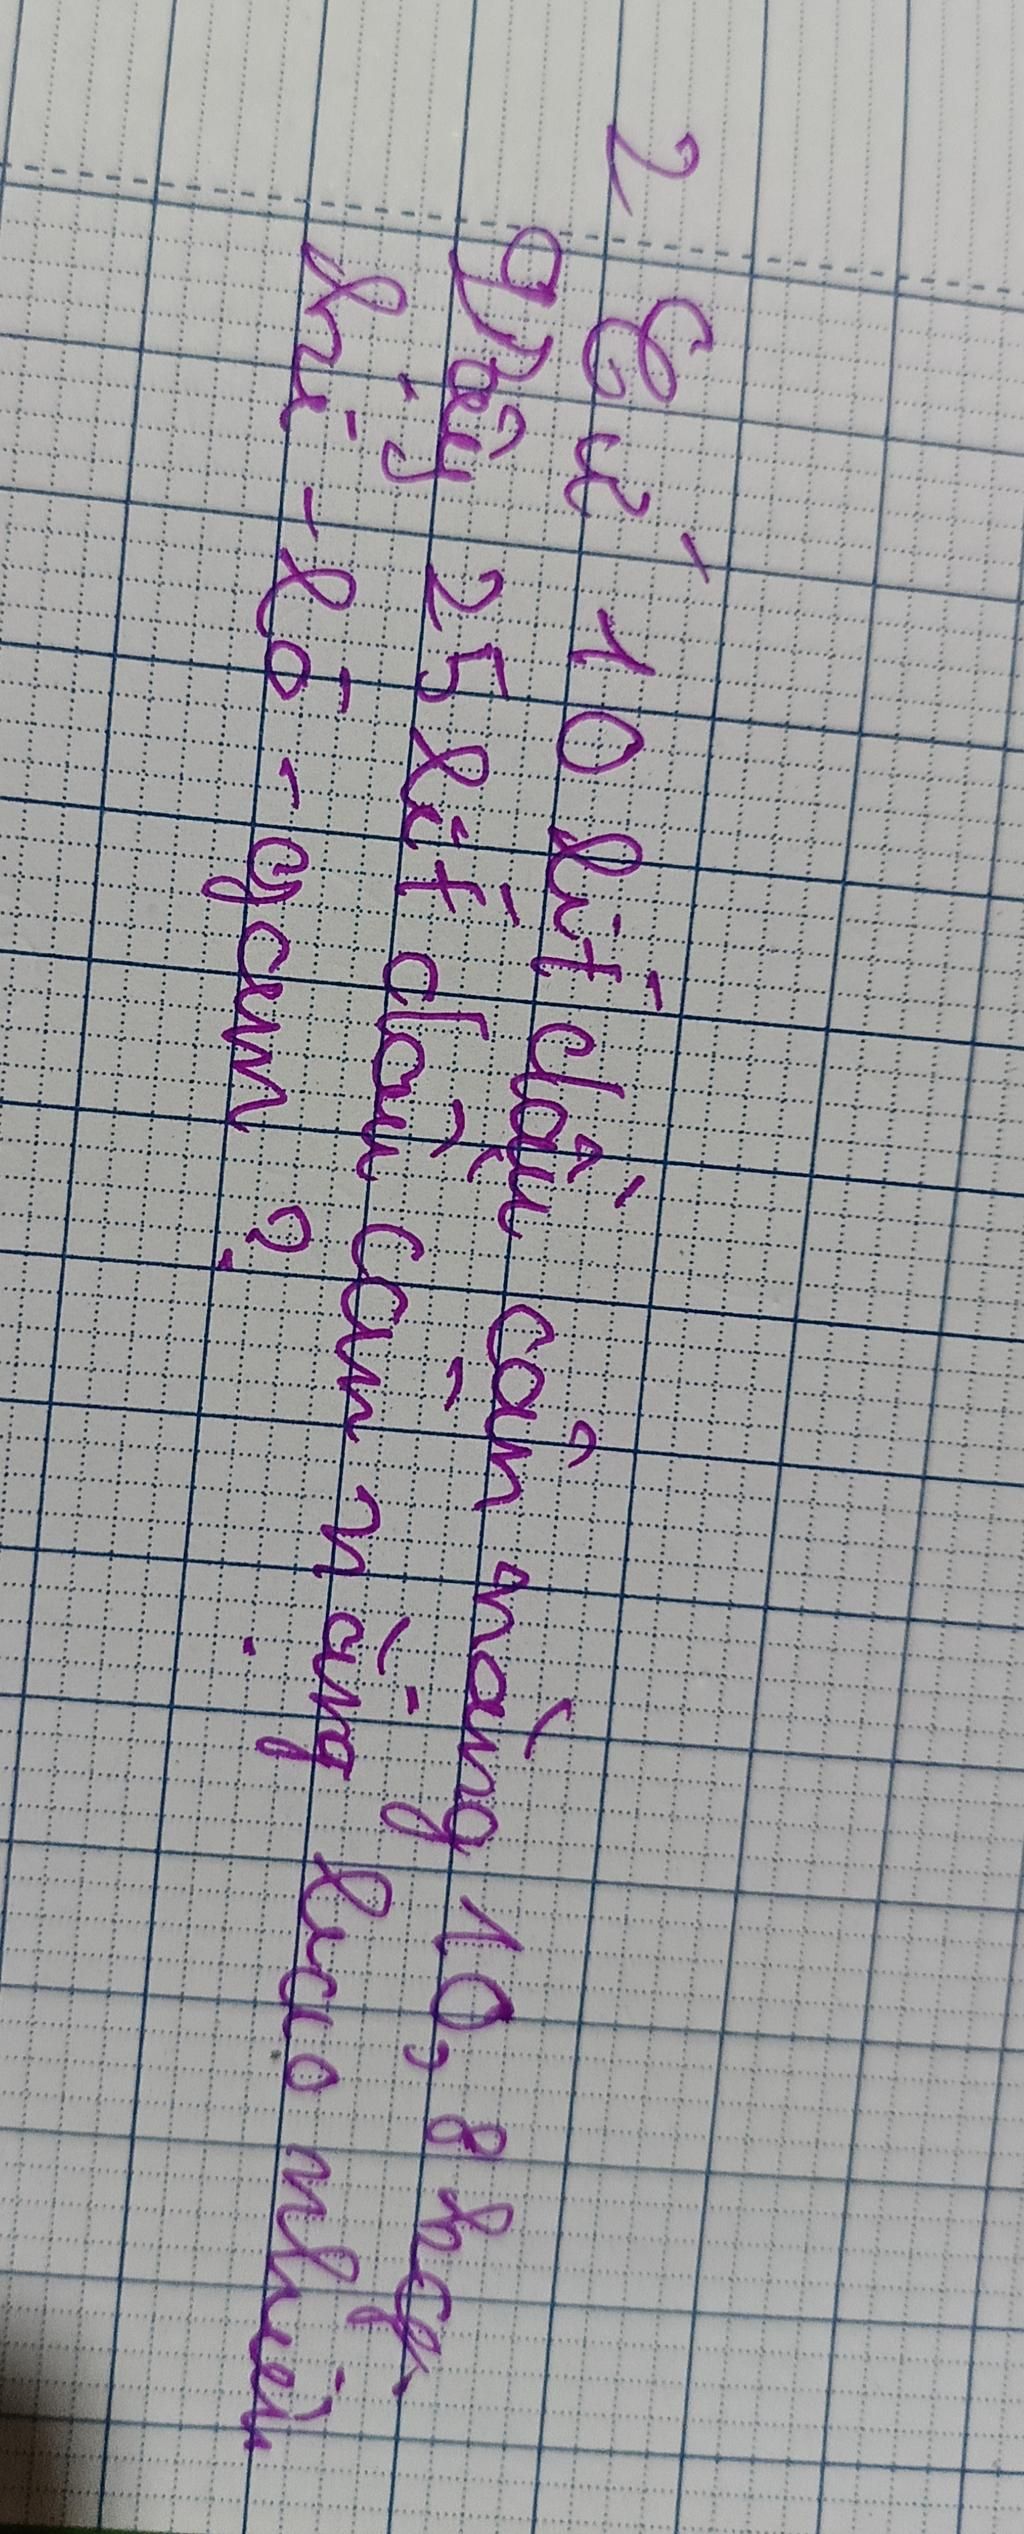 2 Cứ 10 lít dầu cân nặng 10,8 kg.
Vậy 25 lít dầu cân nặng bao nhiêu
ki-lô-gam?